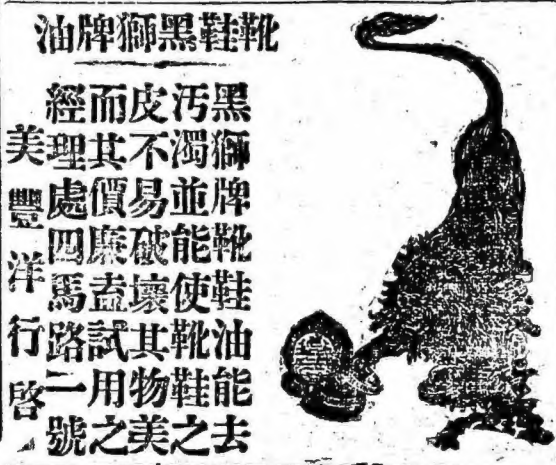 靴鞋黑獅牌油
黑獅牌靴鞋油能去
汚濁並能使靴鞋之
皮不易破壞其物美
而其價廉盍試用之
經理處四馬路二號
美豐洋行啓